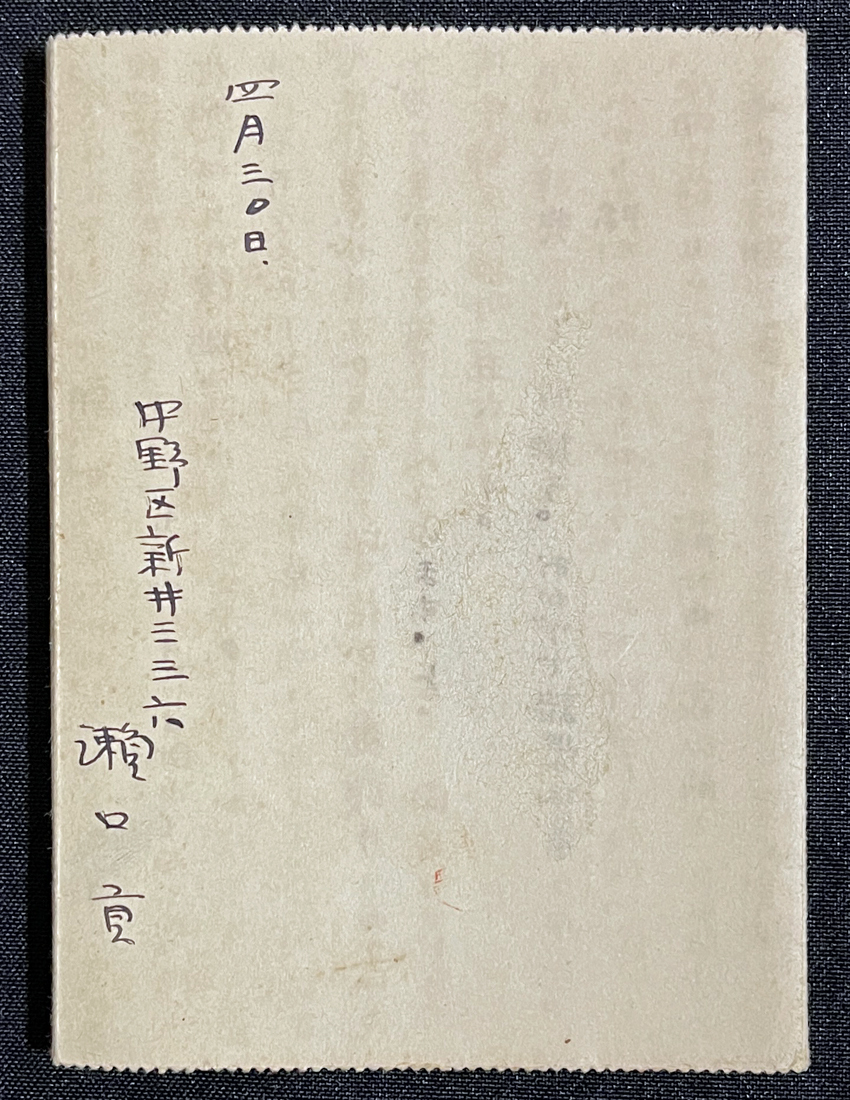 四月三〇日.
中野区新井三三六
瀬口貢